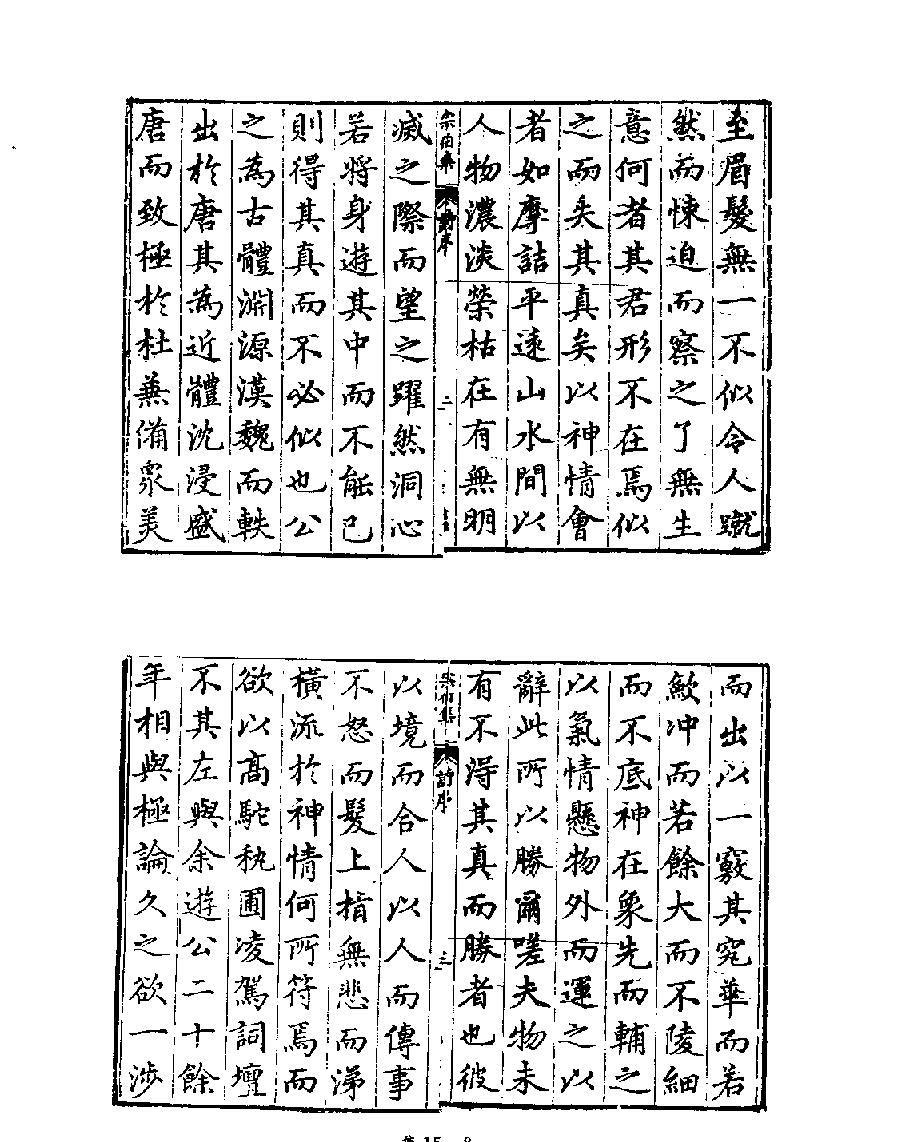 至眉髮無一不似令人蹴
然而悚迫而察之了無生
意何者其君形不在焉似
之而失其真矣以神情會
者如摩詰平遠山水間以
人物濃淡榮枯在有無明
宗伯集
詩序
二
滅之際而望之躍然洞心
若將身遊其中而不能已
則得其真而不必似也公
之為古體淵源漢魏而軼
出於唐其為近體沈浸盛
唐而致極於杜兼備衆美
而出以一竅其究華而若
歉冲而若餘大而不陵細
而不底神在象先而輔之
以氣情懸物外而運之以
辭此所以勝爾嗟夫物未
有不得其真而勝者也彼
宗伯集
詩序
三
以境而合人以人而傳事
不怒而髮上指無悲而涕
橫流於神情何所符焉而
欲以高駝秇圃凌駕詞壇
不其左與余遊公二十餘
年相與極論久之欲一涉